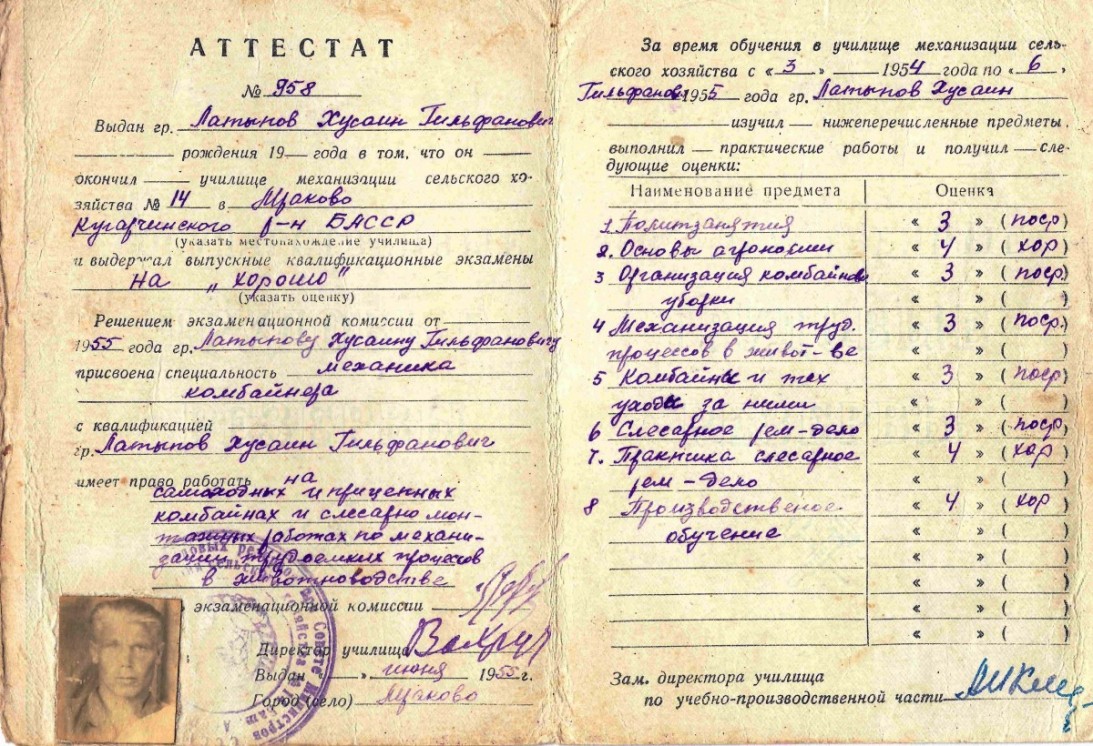 АТТЕСТАТ
№ 958
Выдан гр. Латыпов Хусаин Гильфанович
рождения 19 года в том, что он
окончил училище механизации сельского хо-
зяйства № 14 в Мраково
Кугарчинского р-н БАССР
(указать местонахождение училища)
и выдержал выпускные квалификационные экзамены
на „хорошо"
(указать оценку)
Решением экзаменационной комиссии от
1955 года гр. Латыпову Хусаину Гильфановичу
присвоена специальность механика
комбайнера
с квалификацией
гр. Латыпов Хусаин Гильфанович
имеет право работать на
самоходных и прицепных
комбайнах и слесарно мон-
тажных работах по механи-
зации трудоемких процессов
в животноводстве
экзаменационной комиссии
Директор училища
Выдан » июня 1955 г.
Город (село) Мраково
За время обучения в училище механизации сель-
ского хозяйства с «3» 1954 года по «6»,
Гильфанов 1955 года гр. Латыпов Хусаин
изучил — нижеперечисленные предметы,
выполнил — практические работы и получил — сле-
дующие оценки:
Наименование предмета Оценка
1 Политзанятия « 3 » (поср)
2. Основы агрономии « 4 » (хор)
3 Организация комбайнов « 3 » (поср.)
уборки « » ( )
4 Механизация труд. « 3 » (поср.)
процессов в живот-ве « » ( )
5 Комбайны и тех « 3 » (поср)
уходы за ними « » ( )
6 Слесарное рем-дело « 3 » (поср)
7. Практика слесарное « 4 » (хор)
рем-дело « » ( )
8 Производственое « 4 » (хор)
обучение « » ( )
« » ( )
« » ( )
« » ( )
« » ( )
Зам. директора училища
по учебно-производственной части